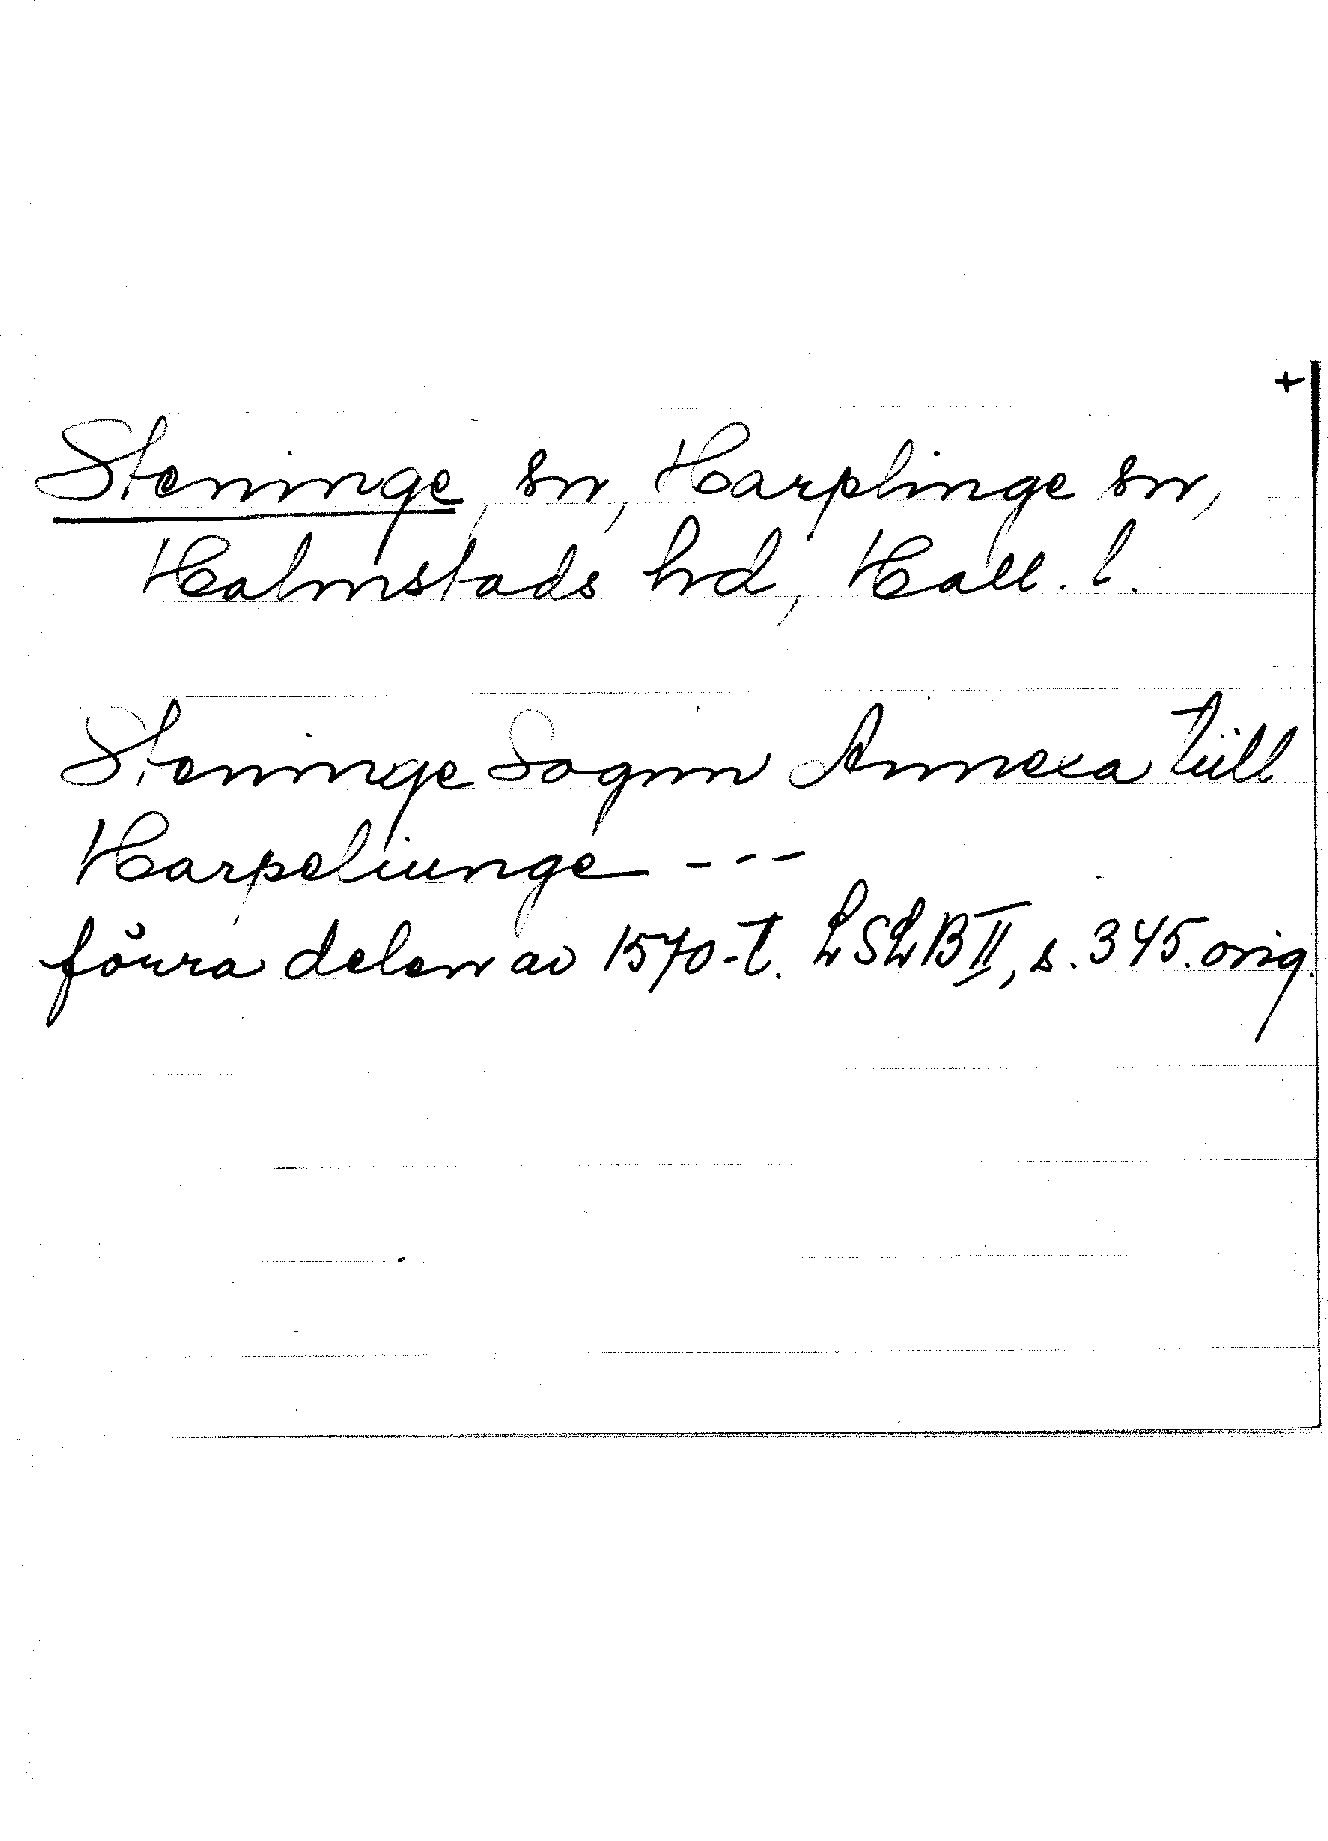 +
Steninge, sn, Harplinge sn,
Halmstads hd, Hall. l.
Steninge Sognn Annexa tüll
Harpeliunge ---
förra delen av 1570-t. LSLB II, s. 345. orig.